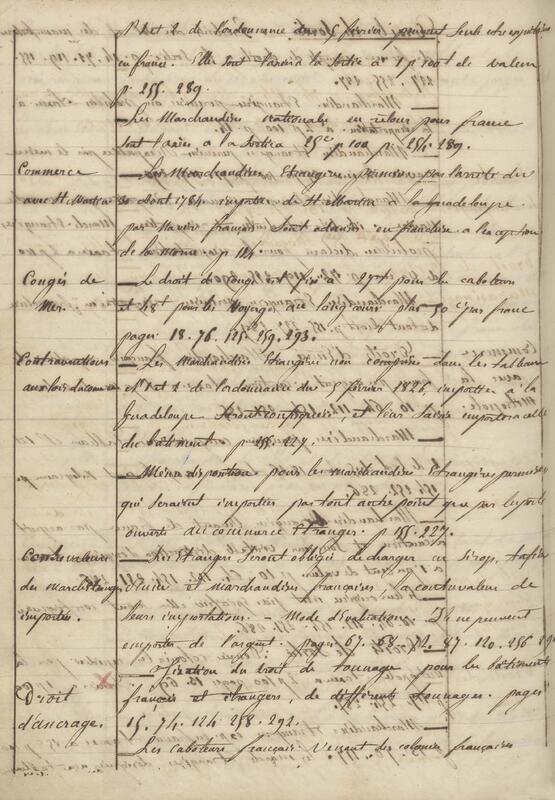 Nº 1 et 2 de l'ordonnance du 5 février peuvent seuls être expédiées
en france. Elles sont taxées à la sortie à 1 p 100 de valeur
p 255. 289.
— Les Marchandises Nationales en retour pour france
sont taxées à la Sortie à 25c p 100 p 254. 289.
Commerce — Les Marchandises Etrangères permises par l'arrêté du
avec St Martin 30 Août 1784. importées de St Martin à la Guadeloupe
par Navire français sont admises en franchise à l'exception
de la morue p 114.
Congés de — Le droit de congé est fixé à 27f pour les caboteurs
Mer. et 48f pour les Voyages au long cours plus 50c par franc
pages 18. 76. 125. 259. 293.
Contraventions — Les Marchandises Etrangères non comprises dans les tableaux
aux lois du commerce Nº 1 et 2 de l'ordonnance du 5 février 1826, importées à la
Guadeloupe seront confisquées, et leur saisie emportera celle
du bâtiment p 227.
— Même disposition pour les marchandises Etrangères permises
qui seraient importées par tout autre point que par les ports
ouverts au commerce Etranger. p 227.
Contrevaleur — Les Etrangers seront obligés de charger en Sirop, tafia
des March. Etrangères et Marchandises françaises, la contrevaleur de
importées. leurs importations. — Mode d'évaluation. Ils ne peuvent
emporter de l'argent. pages 67. 68. 72. 87. 120. 256
— Fixation du droit de tonnage pour les bâtiments
Droit français et étrangers, de différents tonnages. pages
d'ancrage. 15. 74. 124. 258. 292.
— Les caboteurs français venant des colonies françaises